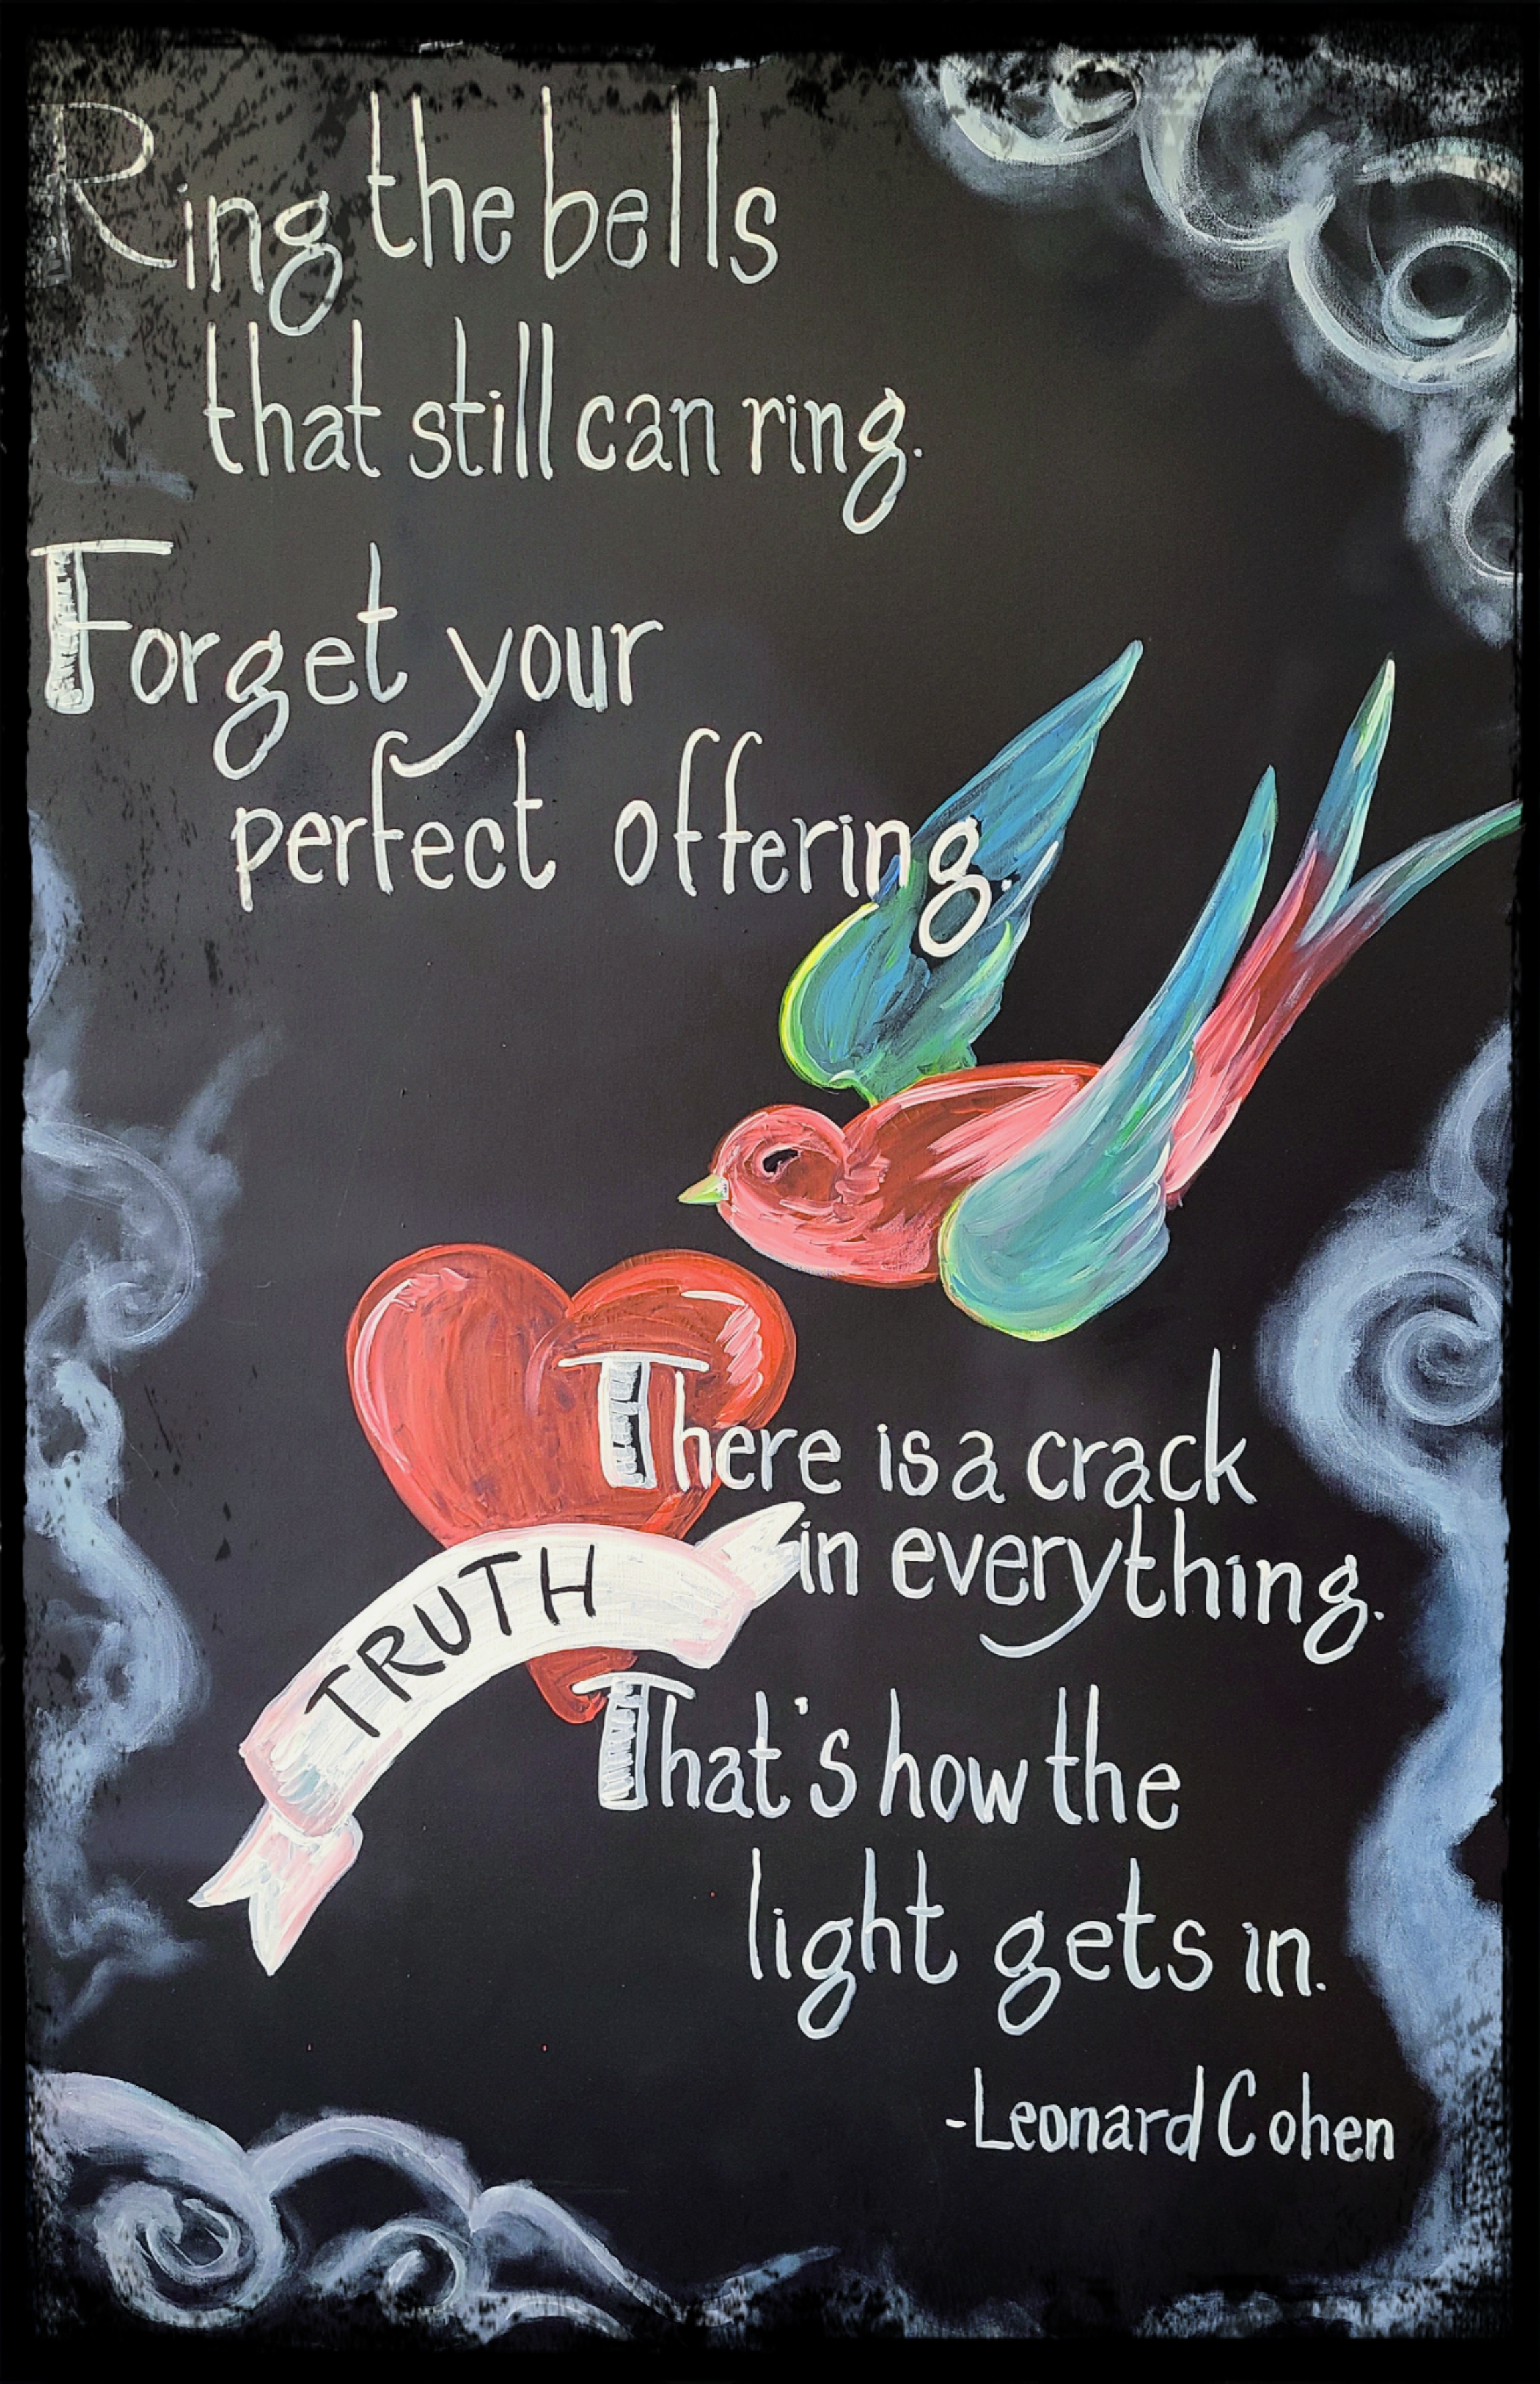 Ring the bells
that still can ring.
Forget your
perfect offering.
There is a crack
in everything.
TRUTH
That's how the
light gets in.
-Leonard Cohen